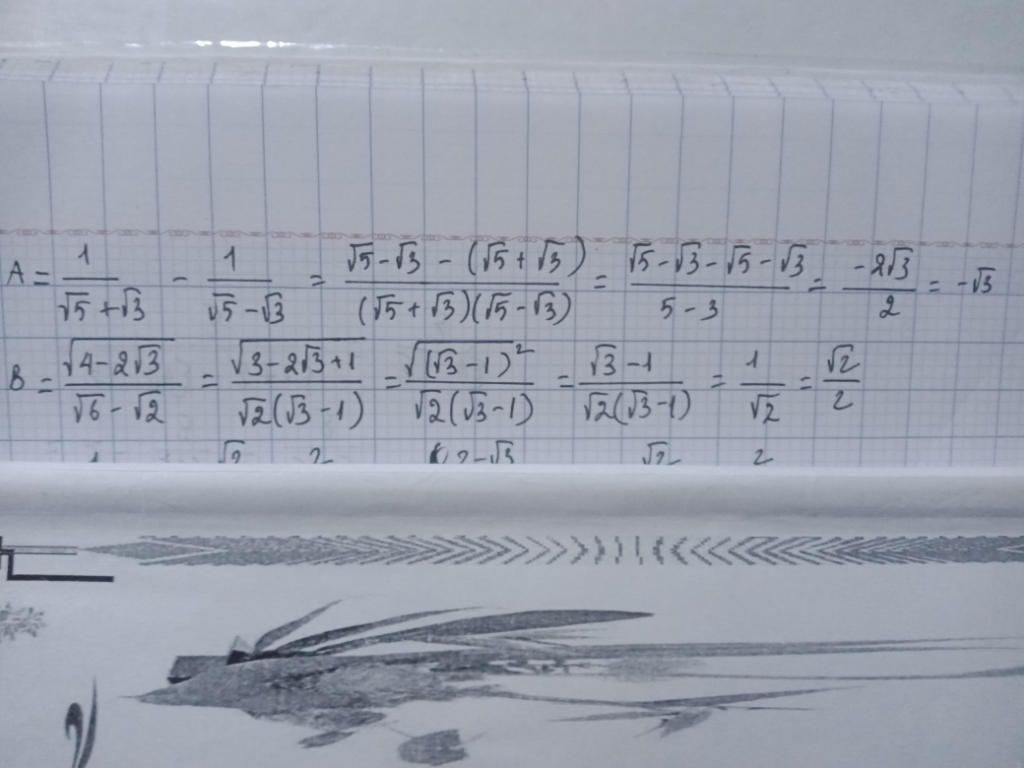 A = 1/(√5 + √3) - 1/(√5 - √3) = (√5 - √3 - (√5 + √3))/((√5 + √3)(√5 - √3)) = (√5 - √3 - √5 - √3)/(5 - 3) = (-2√3)/2 = -√3
B = √(4 - 2√3)/(√6 - √2) = √(3 - 2√3 + 1)/(√2(√3 - 1)) = √((√3 - 1)²)/(√2(√3 - 1)) = (√3 - 1)/(√2(√3 - 1)) = 1/√2 = √2/2